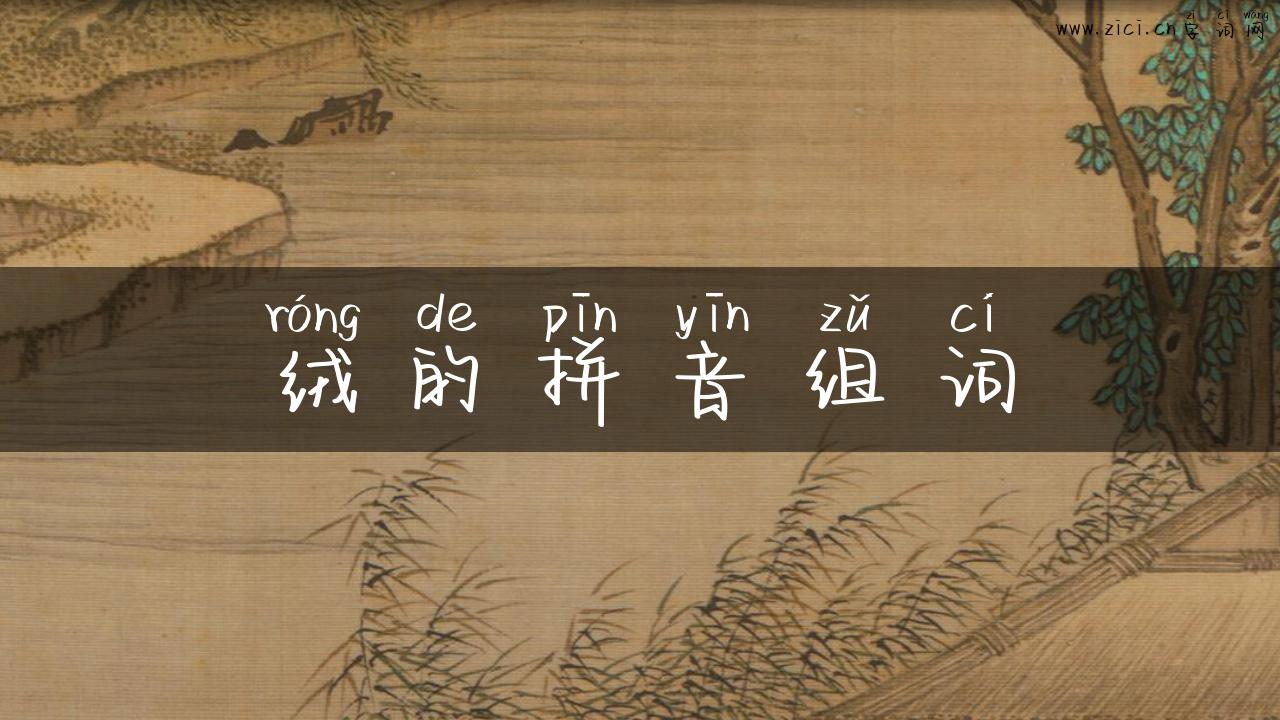 zì cí wǎng
www.zici.cn字词网
róng de pīn yīn zǔ cí
绒的拼音组词